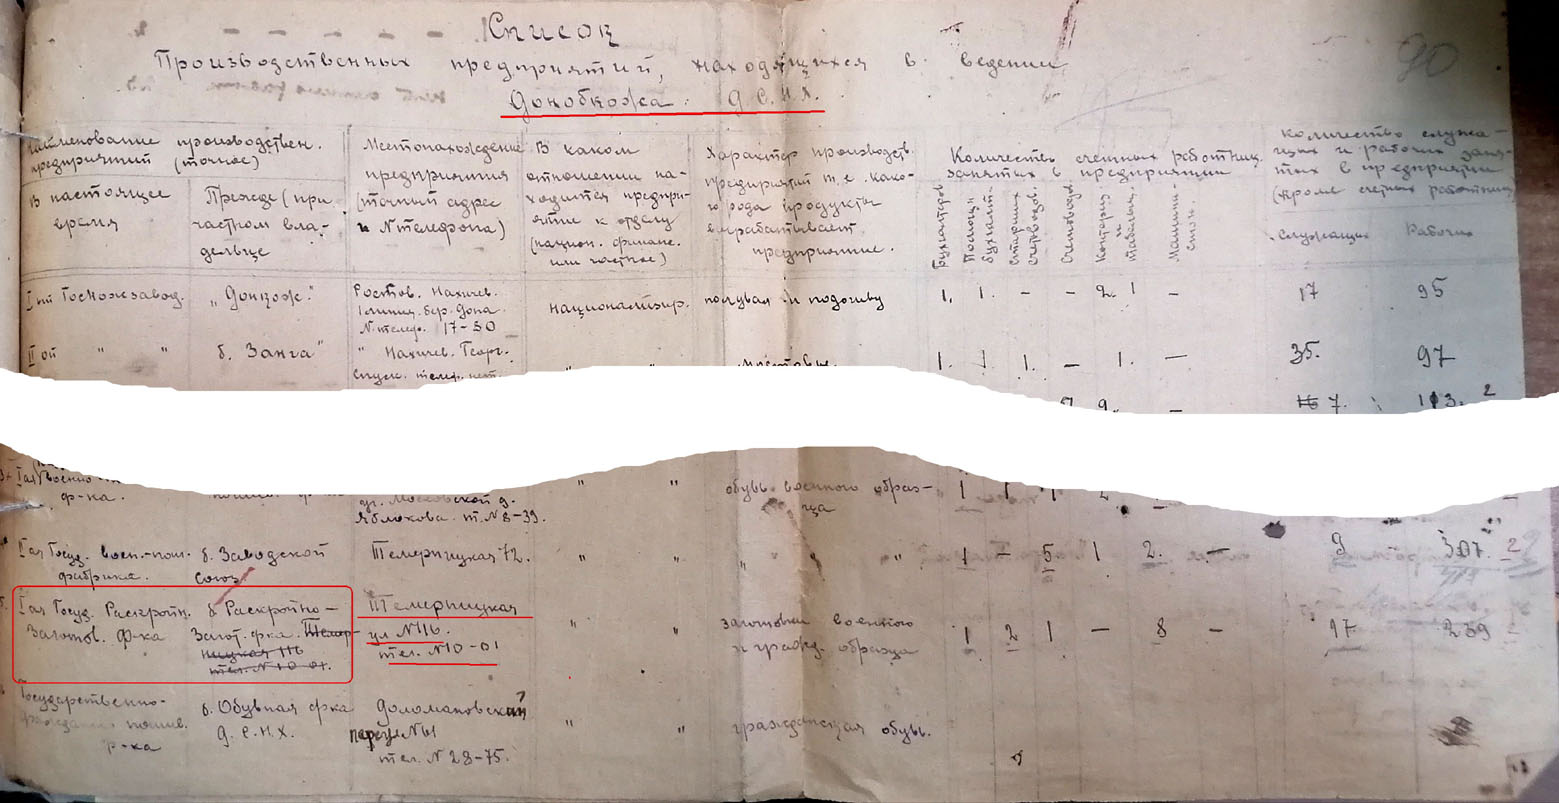 Список
Производственных предприятий, находящихся в ведении
Донобкожа Д.С.Н.Х.
90
Наименование производствен. предприятий (точное)
В настоящее время
Прежде (при частном вла-
дельце
Местонахождение
предприятия
(точный адрес
и N телефона)
В каком
отношении на-
ходится предпри-
ятие к отделу
(национ. финанс.
или частное)
Характер производств.
предприятий т.е. како-
го рода продукты
вырабатывает
предприятие.
Количество счетных работниц.
занятых в предприятии
Бухгалтеров
Помощн. бухгалт.
Старших счетоводов.
Счетоводов
Конторщ. и табельщ.
Машини-
сток.
Количество служа-
щих и рабочих заня-
тых в предприятии
(кроме счетных работниц)
Служащих
Рабочих
I ый Госкожзавод. „Донкож." Ростов. Нахичев.
1 линия. бер. Дона
N телеф. 17-50
национализир. полувал и подошву 1. 1. - - 2. 1 - 17 95
II ой " " б. Занга" " Нахичев. Георг.
спуск. телеф. нет.
1. 1 1. - 1. - 35. 97
7. 113. 2
I ая Военно-
ф-ка.
ул. Московской д.
Яблокова. т. N 8-39.
" " обувь военного образ-
ца
I ая Госуд. воен.-пош.
фабрика.
б. Заводской
союз
Темерницкая 72. " " " " " 1 - 5 1 2. - 9 307. 2
I ая Госуд. Раскройн.
Заготов. Ф-ка
б. Раскройно-
Загот. фка. Темер-
ницкая 116
тел. N 10-01.
Темерницкая
ул N 116.
тел. N 10-01
" " заготовки военного
и гражд. образца
1 2 1 - 8 - 17 239 2
Государственно-
гражданск. пошив.
ф-ка
б. Обувная фка
Д.С.Н.Х.
Доломановский
пер. N 61
тел. N 28-75.
" " гражданская обувь.